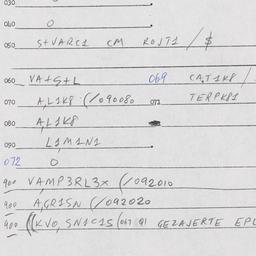 030
040 0
050 S+VARC1 CM ROJT1 / $
060 VA+S+L 069 CA,T1K8 /
070 A,L1K8 (/090080 073 TERPK81
080 A,L1K8
090 L1M1N1
072 0
900 VAMP3RL3X (/092010
900 A,GR1SN (/092020
400 ((KVO,SN1C1S (067 GEZAJERTE EPL